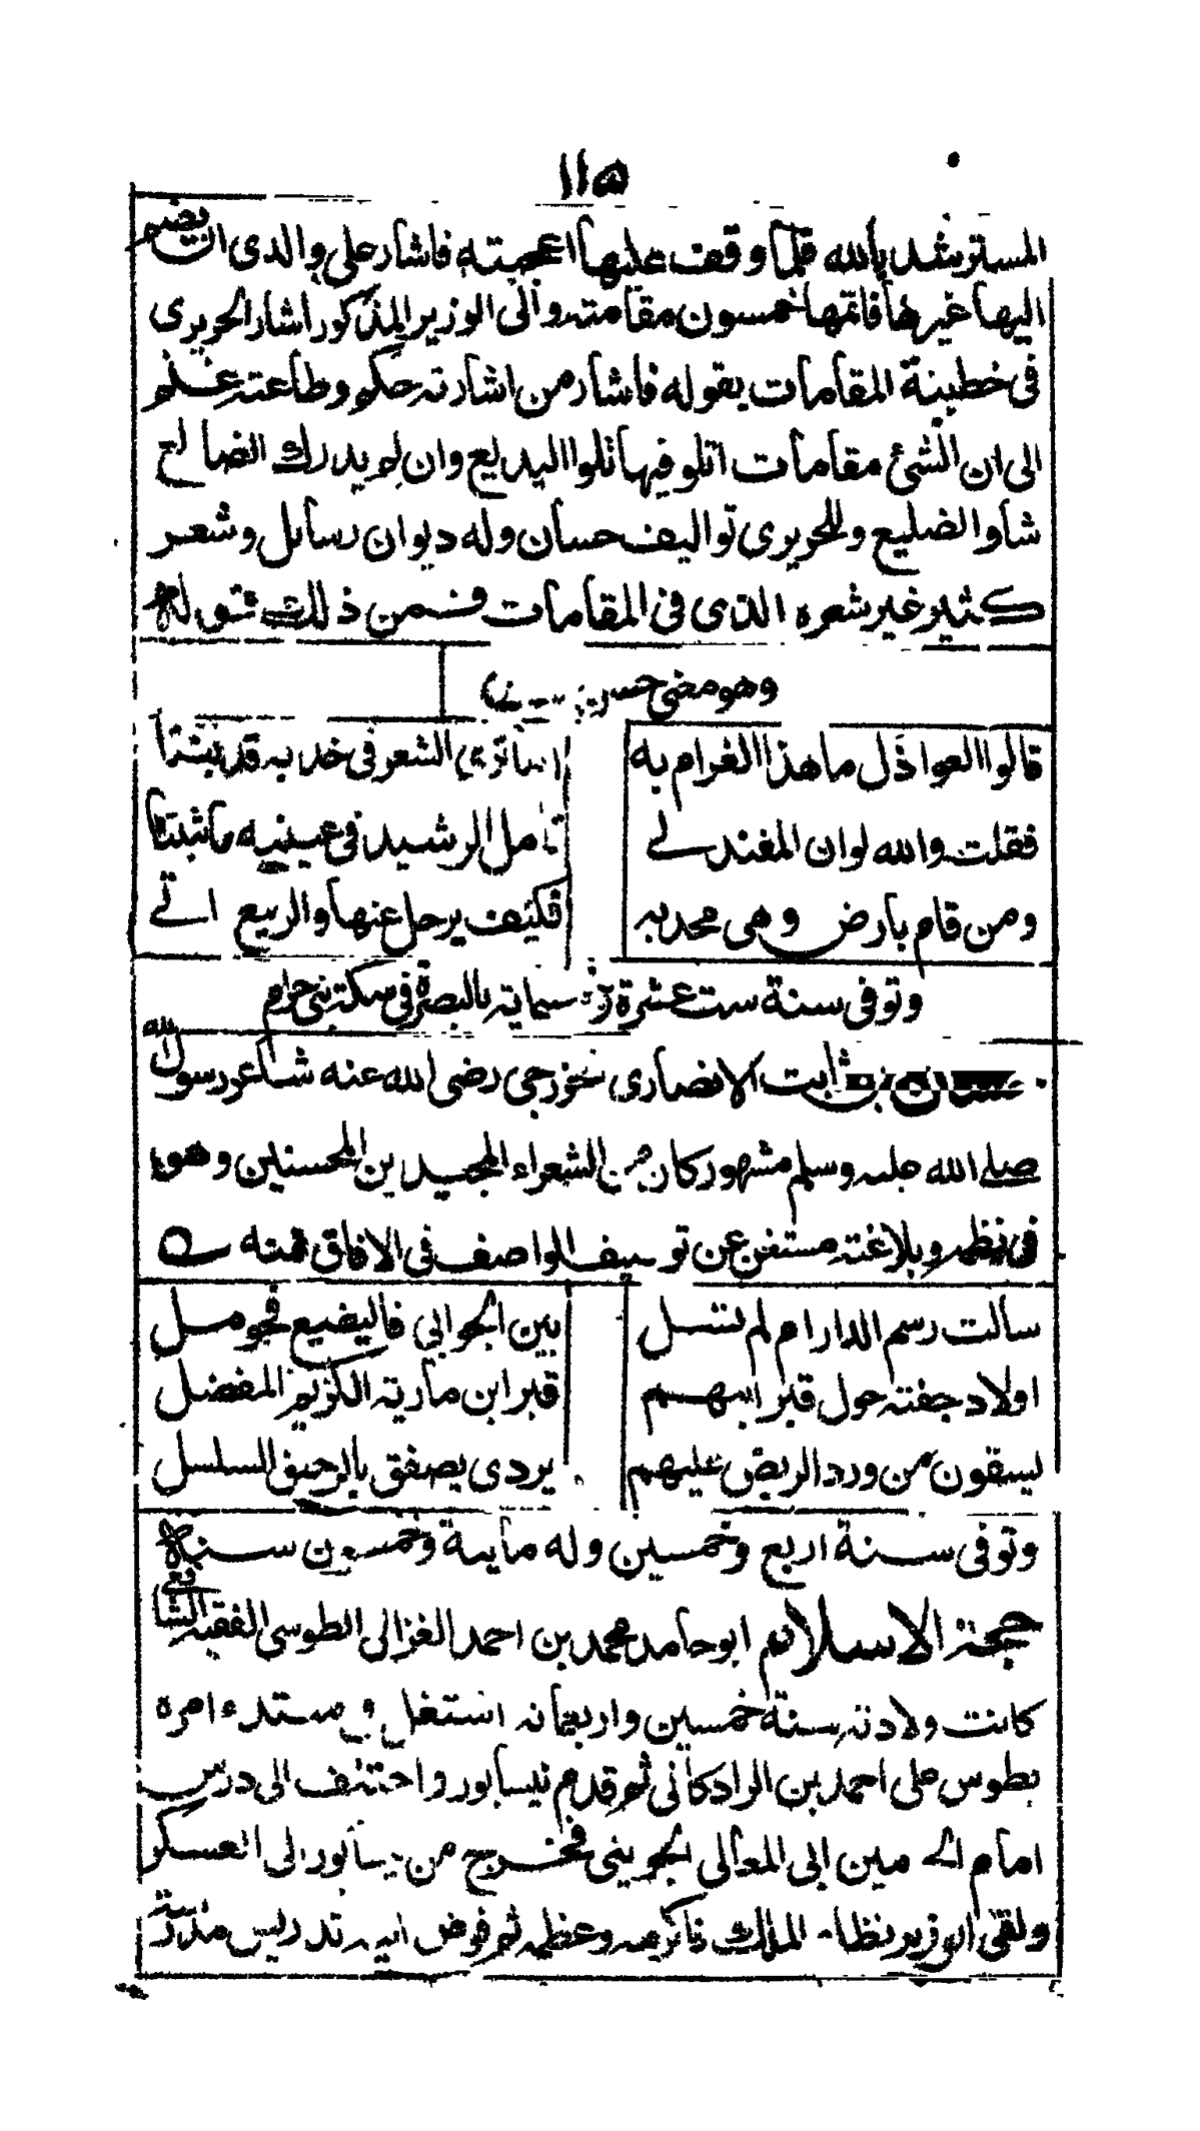 ١١٥
المسترشد بالله فلما وقف عليها اعجبته فاشار على والدى ان يضم
اليها غيرها فاتمها خمسون مقامته والى الوزير المذكور اشار الحريرى
فى خطبنة المقامات بقوله فاشار من اشارته حكم وطاعته غنم
الى ان انشئ مقامات اتلو فيها تلوا البديع وان لم يدرك الضالع
شأو الضليع وللحريرى تواليف حسان وله ديوان رسائل وشعر
كثير غير شعره الذى فى المقامات فمن ذلك قوله
وهو معنى حسن
قالوا العواذل ما هذا الغرام به اما ترى الشعر فى خديه قد نبتا
فقلت والله لو ان المفند لے تامل الرشيد فى عينيه ما ثبتا
ومن قام بارض وهى مجدبه فكيف يرحل عنها والربيع اتے
وتوفى سنة ست عشرة وخمسماية بالبصرة فى سكة بنى حرام
حسان بن ثابت الانصارى خزرجى رضى الله عنه شاعر رسول الله
صلے الله عليه وسلم مشهور كان من الشعراء المجيدين المحسنين وهو
فى نظمه وبلاغته مستغن عن توصيف الواصف فى الافاق فمنه
سالت رسم الدار ام لم تسل بين الجوابي فاليضيع فحومل
اولاد جفنته حول قبر ابيهم قبر ابن مارية الكريم المفضل
يسقون من ورد البريص عليهم بردى يصفق بالرحيق السلسل
وتوفى سنة اربع وخمسين وله ماية وخمسون سنة
حجة الاسلام ابو حامد محمد بن احمد الغزالى الطوسى الفقيه الشافعى
كانت ولادته سنة خمسين واربعمائه اشتغل فى مبتدء امره
بطوس على احمد بن الرادكانى ثم قدم نيسابور واختلف الى درس
امام الحرمين ابى المعالى الجوينى فخرج من نيسابور الى العسكر
ولقى الوزير نظام الملك فاكرمه وعظمه ثم فوض اليه تدريس مدرسة